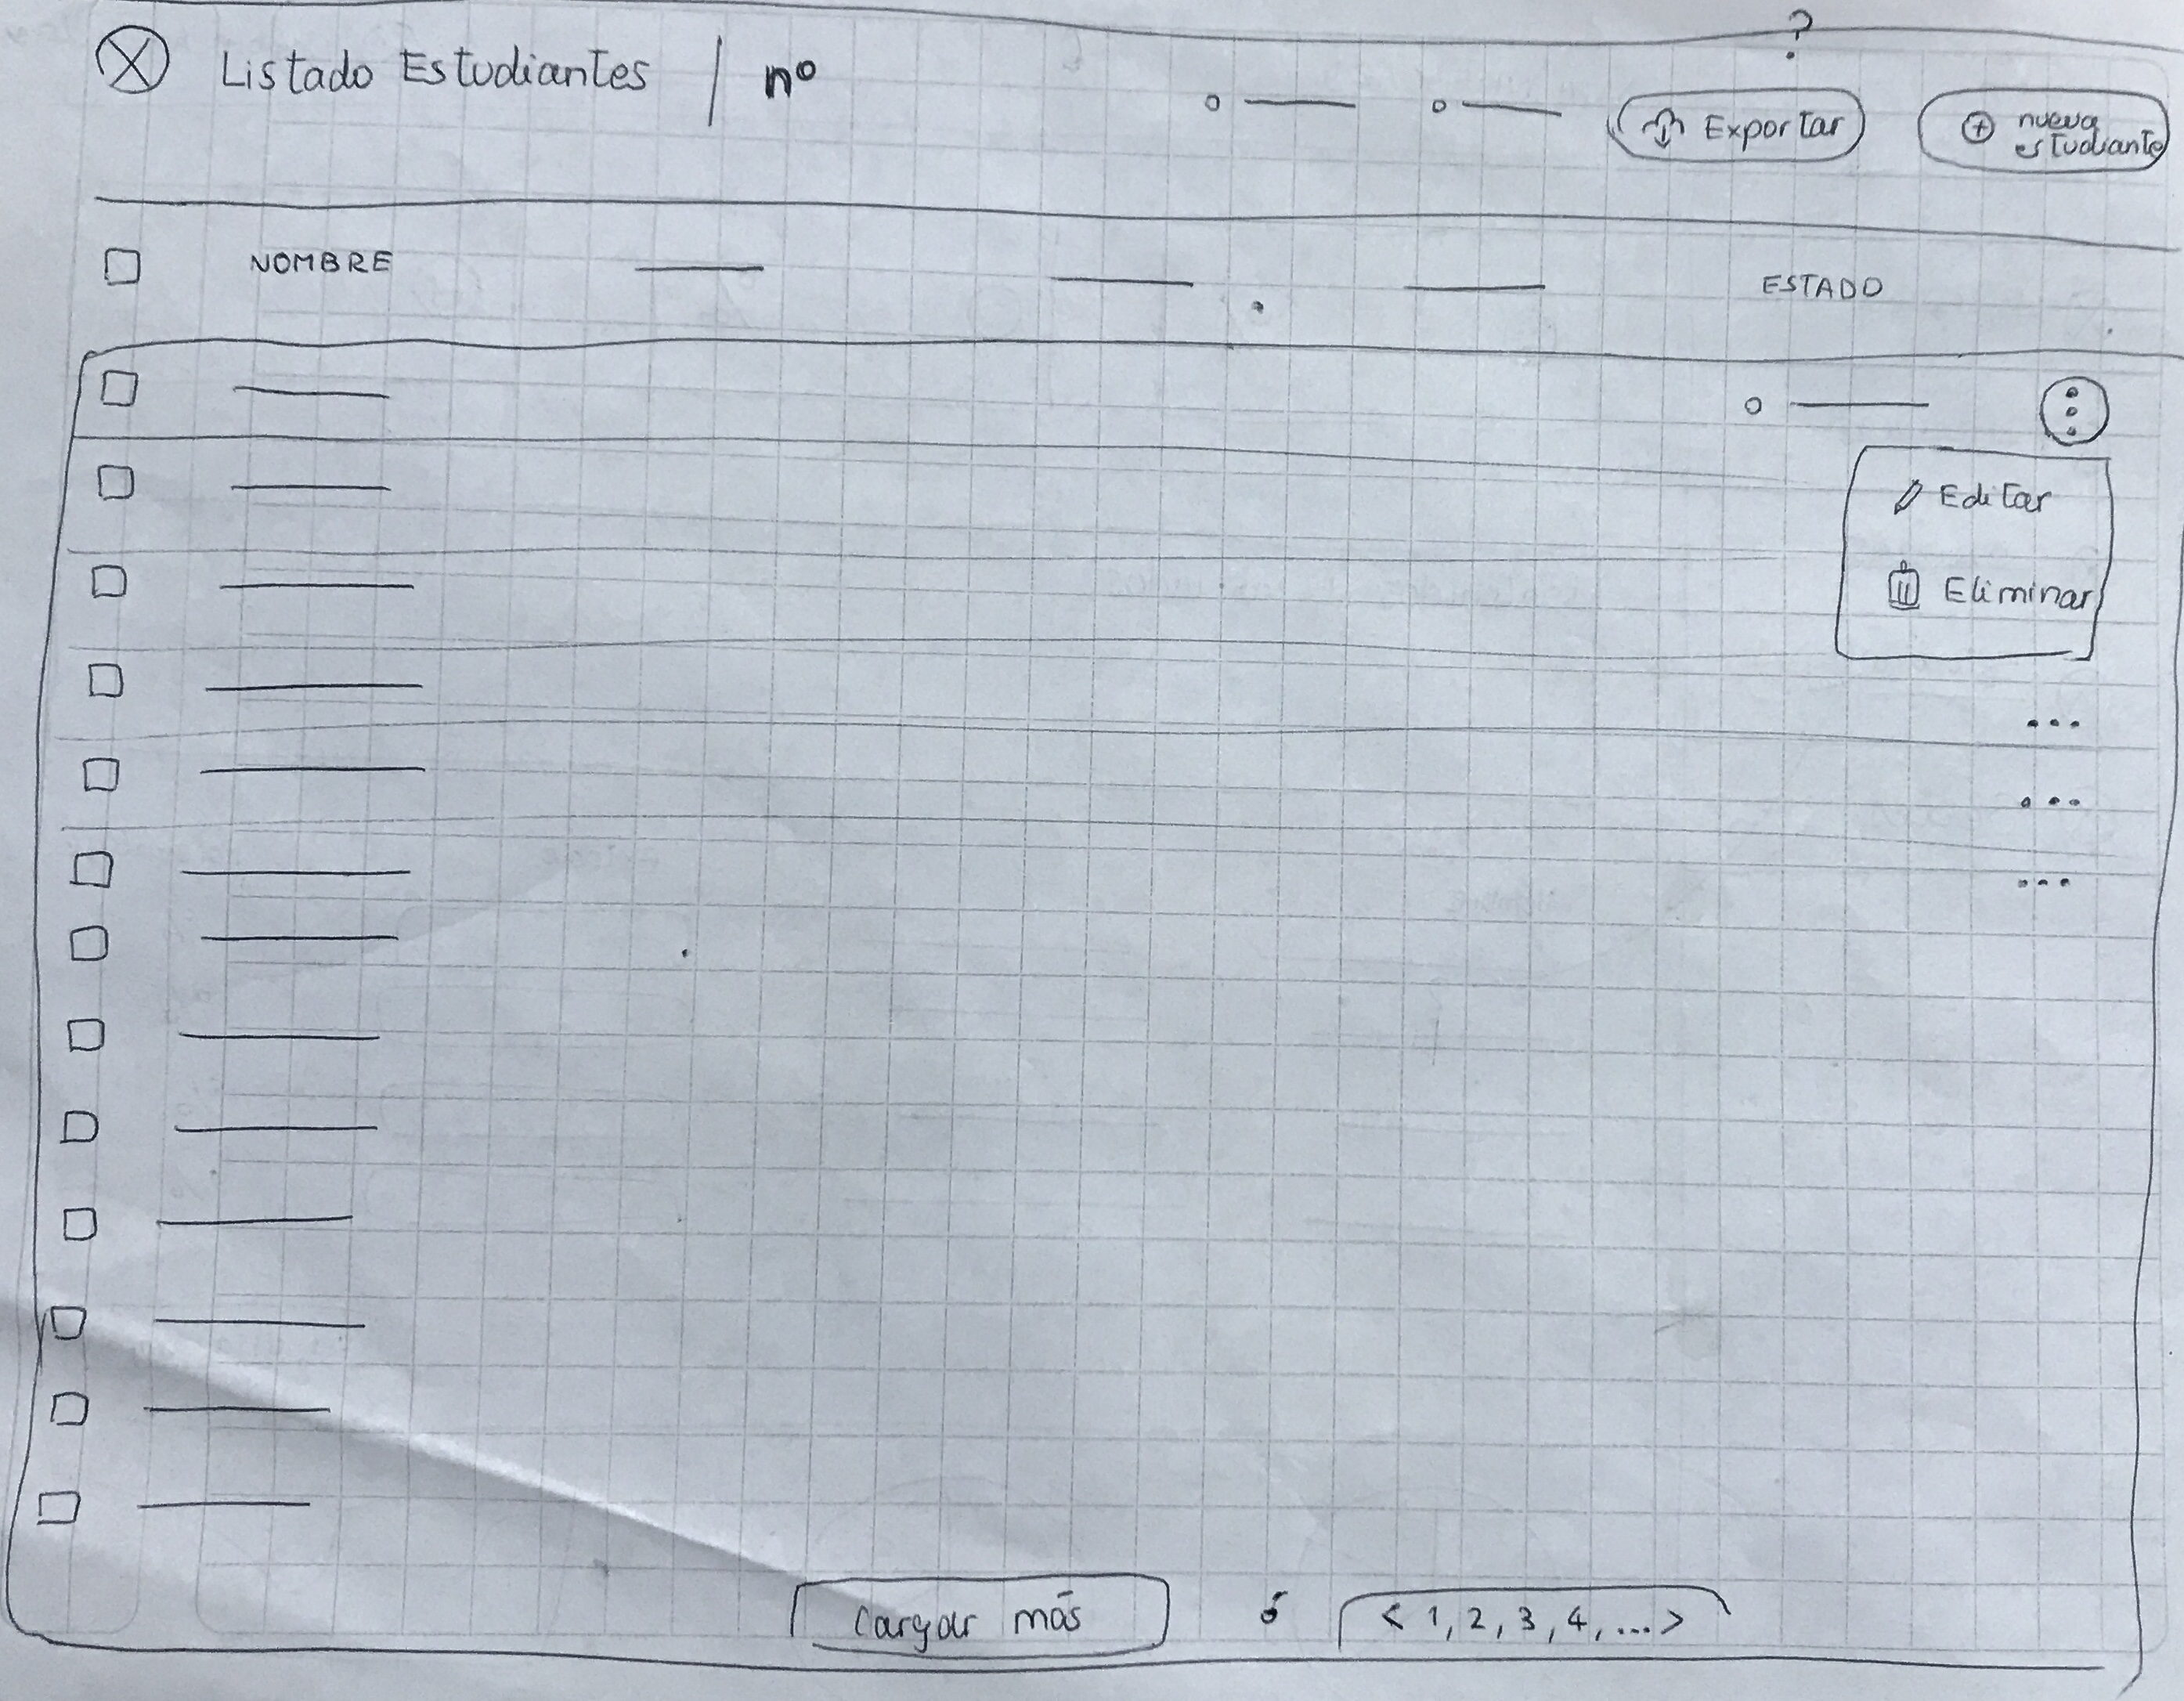 Listado Estudiantes | nº
?
Exportar
nueva
estudiante
NOMBRE
ESTADO
Editar
Eliminar
...
...
...
Cargar más ó < 1, 2, 3, 4, ... >